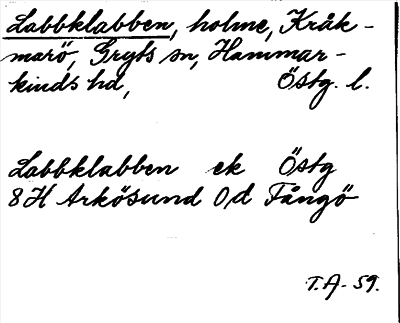 Labbklabben, holme, Kråk-
marö, Gryts sn, Hammar-
kinds hd, Östg. l.
Labbklabben ek Östg
8H Arkösund 0d Fångö
T.A-59.